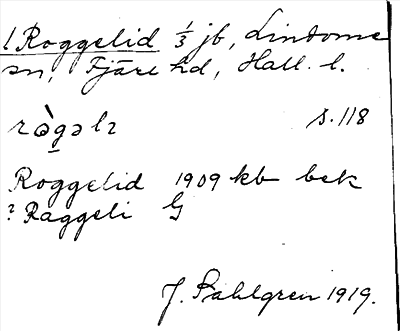 1 Roggelid 1/3 jb, Lindome
sn, Fjäre hd, Hall. l.
s. 118
Roggelid 1909 kb bek
? Raggeli G
J. Sahlgren 1919.